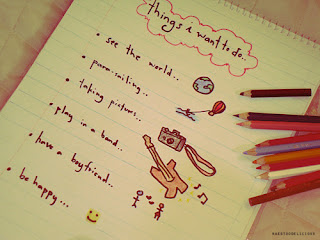 things i want to do..
• see the world..
• para-sailing..
• taking pictures..
• play in a band..
• have a boyfriend..
• be happy...